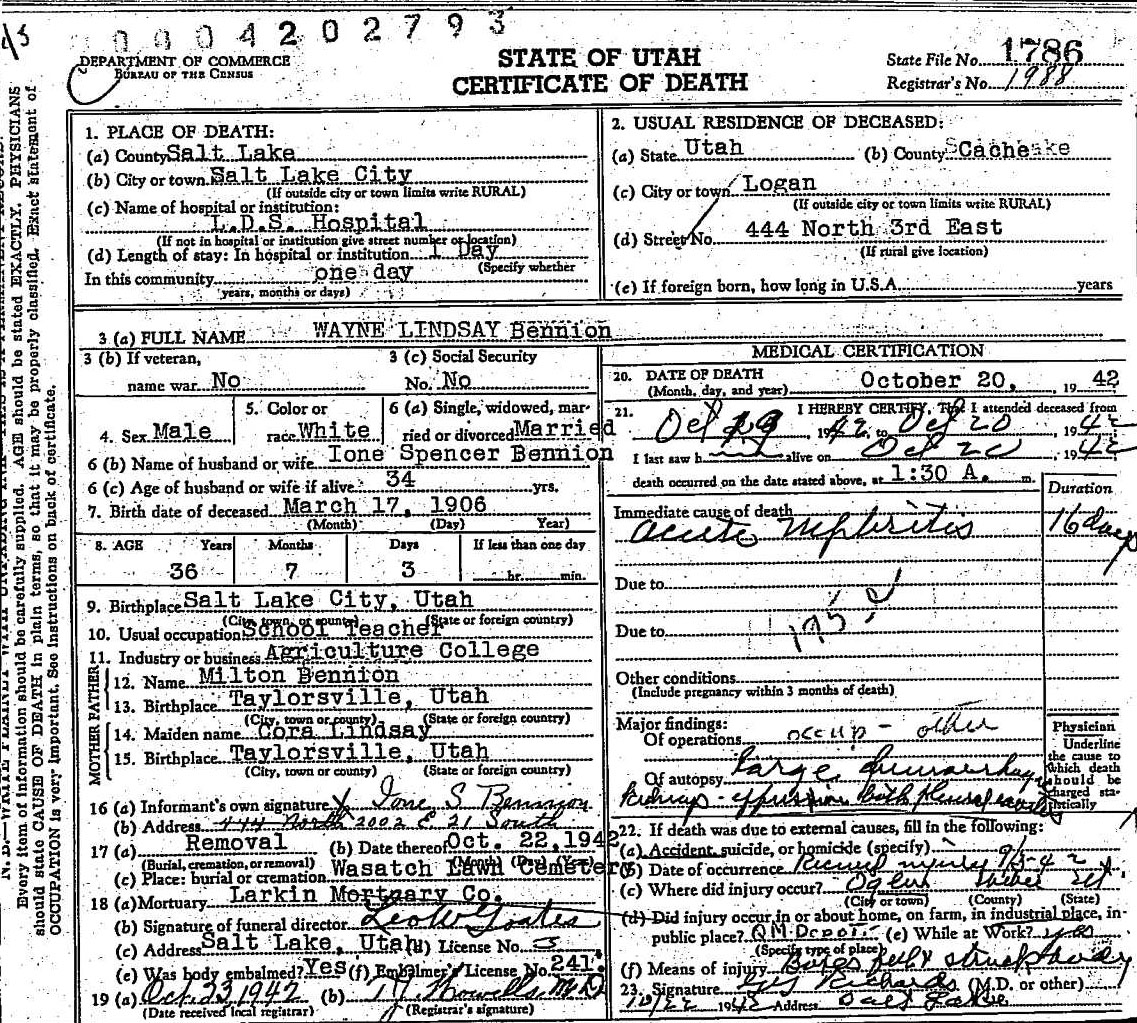 0004202793
DEPARTMENT OF COMMERCE
BUREAU OF THE CENSUS
STATE OF UTAH
CERTIFICATE OF DEATH
State File No. 1786
Registrar's No. 1988
Every item of information should be carefully supplied. AGE should be stated EXACTLY. PHYSICIANS
should state CAUSE OF DEATH in plain terms, so that it may be properly classified. Exact statement of
OCCUPATION is very important. See instructions on back of certificate.
1. PLACE OF DEATH:
(a) County Salt Lake
(b) City or town Salt Lake City
(If outside city or town limits write RURAL)
(c) Name of hospital or institution:
L.D.S. Hospital
(If not in hospital or institution give street number or location)
(d) Length of stay: In hospital or institution 1 Day
(Specify whether
In this community one day
years, months or days)
2. USUAL RESIDENCE OF DECEASED:
(a) State Utah (b) County Cache
(c) City or town Logan
(If outside city or town limits write RURAL)
(d) Street No. 444 North 3rd East
(If rural give location)
(e) If foreign born, how long in U.S.A. years
3 (a) FULL NAME WAYNE LINDSAY Bennion
3 (b) If veteran, 3 (c) Social Security
name war No No. No
4. Sex Male 5. Color or race White 6 (a) Single, widowed, married or divorced Married
6 (b) Name of husband or wife Ione Spencer Bennion
6 (c) Age of husband or wife if alive 34 yrs.
7. Birth date of deceased March 17, 1906
(Month) (Day) Year)
8. AGE Years Months Days If less than one day
36 7 3 hr. min.
9. Birthplace Salt Lake City, Utah
(City, town, or county) (State or foreign country)
10. Usual occupation School Teacher
11. Industry or business Agriculture College
FATHER
12. Name Milton Bennion
13. Birthplace Taylorsville, Utah
(City, town or county) (State or foreign country)
MOTHER
14. Maiden name Cora Lindsay
15. Birthplace Taylorsville, Utah
(City, town or county) (State or foreign country)
16 (a) Informant's own signature x Ione S Bennion
(b) Address 444 North 2002 E. 21 South
17 (a) Removal (b) Date thereof Oct. 22, 1942
(Burial, cremation, or removal) (Month) (Day) (Year)
(c) Place: burial or cremation Wasatch Lawn Cemetery
18 (a) Mortuary Larkin Mortuary Co.
(b) Signature of funeral director
(c) Address Salt Lake, Utah (d) License No. 3
(e) Was body embalmed? Yes (f) Embalmer's License No. 241
19 (a) Oct. 23, 1942 (b) M.D.
(Date received local registrar) (Registrar's signature)
MEDICAL CERTIFICATION
20. DATE OF DEATH
(Month, day, and year) October 20, 1942
21. I HEREBY CERTIFY, That I attended deceased from
Oct 19 1942 to Oct 20 1942
I last saw him alive on Oct 20 1942
death occurred on the date stated above, at 1:30 A. m.
Duration
Immediate cause of death
Acute Nephritis 16 days
Due to
Due to
195
Other conditions
(Include pregnancy within 3 months of death)
Major findings:
Of operations occup - other
Of autopsy Large
Physician
Underline
the cause to
which death
should be
charged sta-
tistically
22. If death was due to external causes, fill in the following:
(a) Accident, suicide, or homicide (specify)
(b) Date of occurrence Received injury
(c) Where did injury occur? Ogden Weber Ut.
(City or town) (County) (State)
(d) Did injury occur in or about home, on farm, in industrial place, in
public place? Q.M. Depot (e) While at Work? yes
(Specify type of place)
(f) Means of injury Boxes fell & struck body
23. Signature Richards (M.D. or other)
10/22 1942 Address Salt Lake